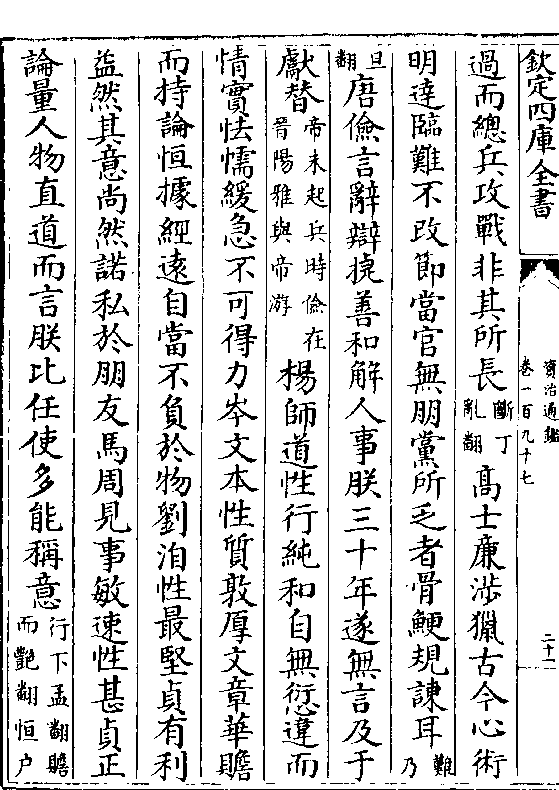 欽定四庫全書
資治通鑑
卷一百九十七
二十一
過而總兵攻戰非其所長斷丁亂翻高士廉涉獵古今心術
明達臨難不改節當官無朋黨所乏者骨鯁規諫耳難乃
旦翻唐儉言辭辯捷善和解人事朕三十年遂無言及于
獻替帝未起兵時儉在晉陽雅與帝游楊師道性行純和自無愆違而
情實怯懦緩急不可得力岑文本性質敦厚文章華贍
而持論恒據經遠自當不負於物劉洎性最堅貞有利
益然其意尚然諾私於朋友馬周見事敏速性甚貞正
論量人物直道而言朕比任使多能稱意行下孟翻贍而艷翻恒户